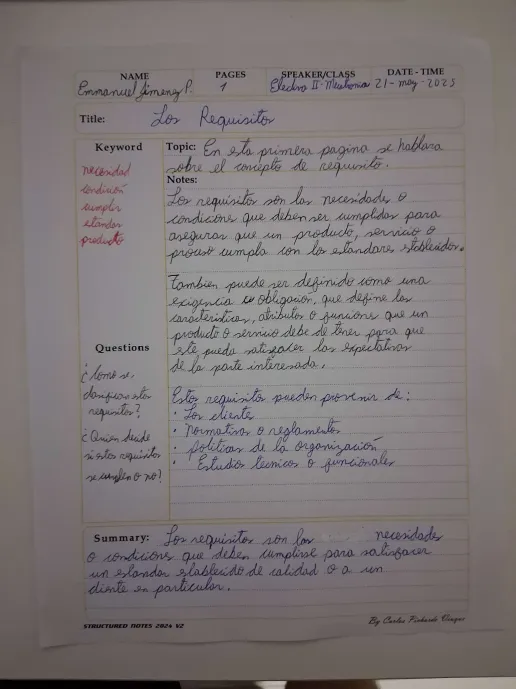 NAME PAGES SPEAKER/CLASS DATE - TIME
Emmanuel Jimenez P. 1 Electiva II-Mecatronica 21-may-2025
Title: Los Requisitos
Keyword
necesidad
condición
cumplir
estandar
producto
Topic: En esta primera pagina se hablara
sobre el concepto de requisito.
Notes:
Los requisitos son las necesidades o
condiciones que deben ser cumplidas para
asegurar que un producto, servicio o
proceso cumpla con los estandares establecidos.
Tambien puede ser definido como una
exigencia u obligación, que define las
caracteristicas, atributos o funciones que un
producto o servicio debe de tener para que
este pueda satisfacer las expectativas
de la parte interesada.
Estos requisitos pueden provenir de:
· Los clientes
· Normativas o reglamentos
· politicas de la organización
· Estudios tecnicos o funcionales
Questions
¿Como se
clasifican estos
requisitos?
¿Quien decide
si estos requisitos
se cumplen o no?
Summary: Los requisitos son las necesidades
o condiciones que deben cumplirse para satisfacer
un estandar establecido de calidad o a un
cliente en particular.
STRUCTURED NOTES 2024 V2
By Carlos Pichardo Vicque